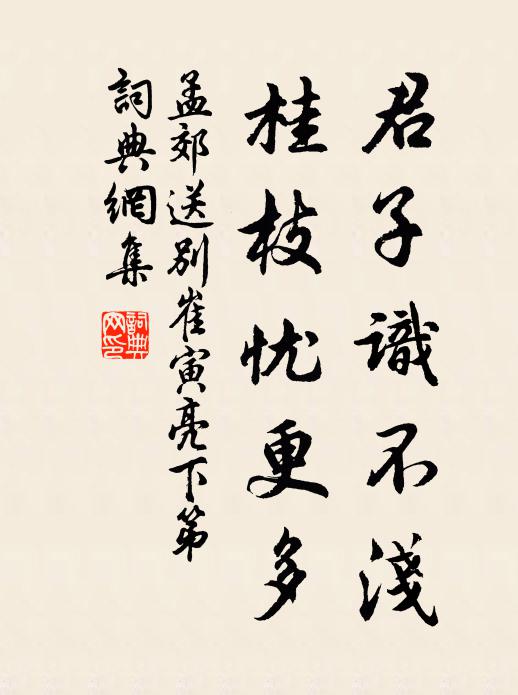 君子識不淺
桂枝忧更多
孟郊送别崔寅亮下第
詞典網集
詞典网印